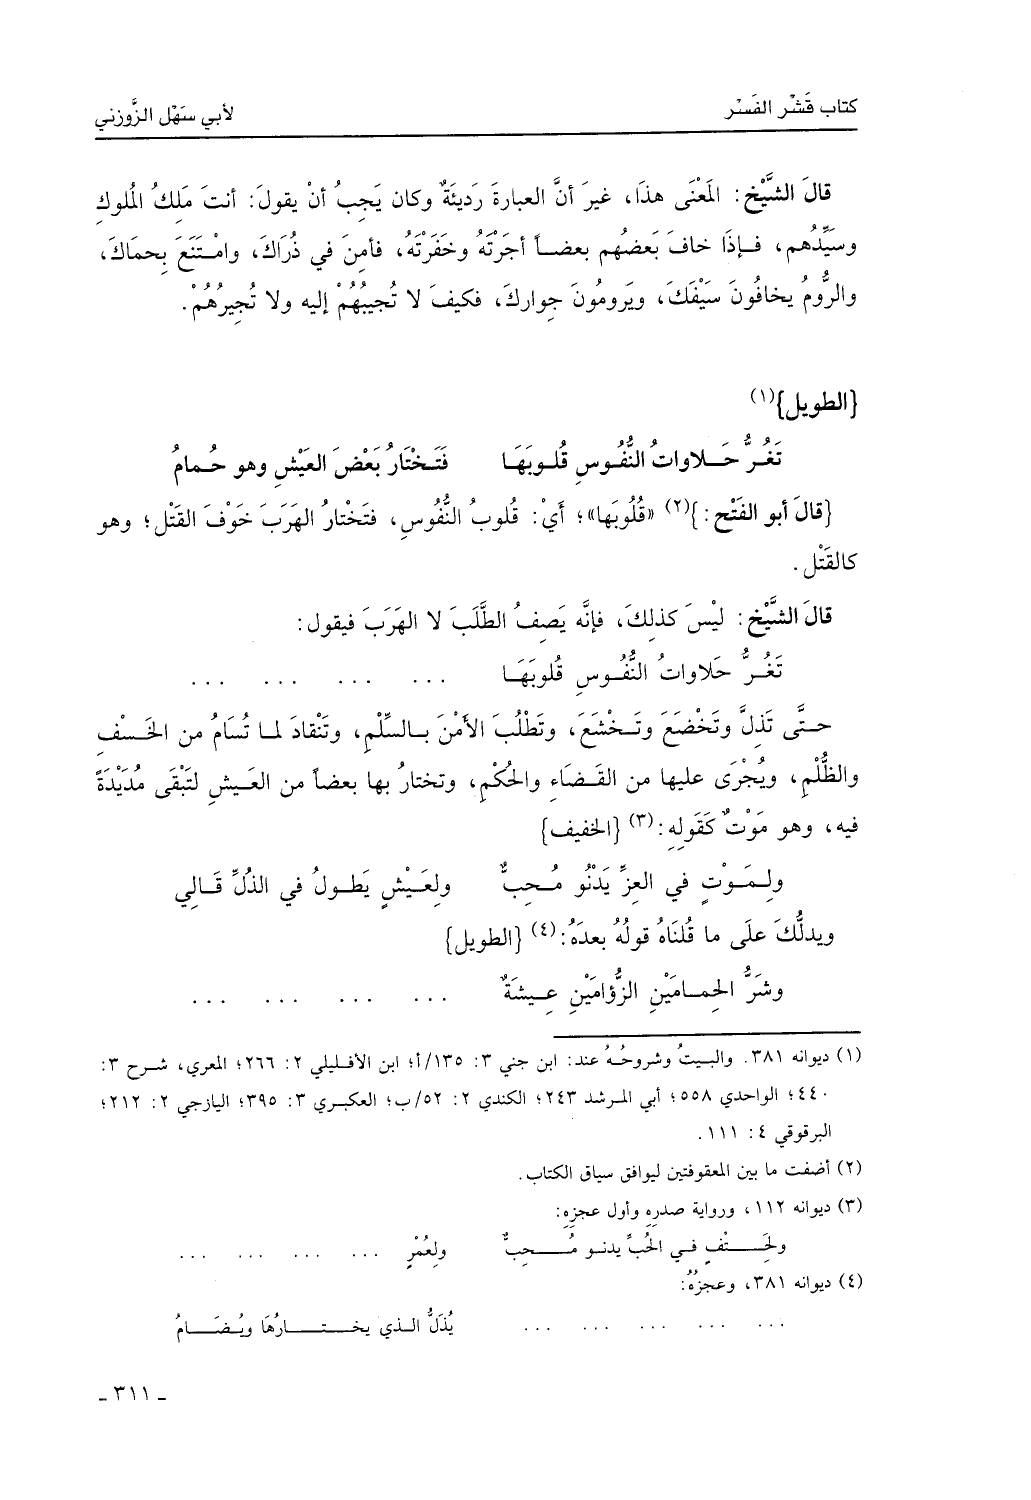 كتاب قَشْر الفَسْر	لأبي سَهْل الزَّوزني
قالَ الشَّيْخ: المَعْنَى هذَا، غيرَ أنَّ العبارةَ رَديئَةٌ وكان يَجِبُ أنْ يقولَ: أنتَ مَلِكُ المُلوكِ
وسَيِّدُهم، فـإذَا خافَ بَعضُهم بعضـاً أجرْتَهُ وخَفَرْتَهُ، فأمِنَ في ذُرَاكَ، وامْـتَنَعَ بِحماكَ،
والرُّومُ يخافُونَ سَيْفَكَ، ويَرومُونَ جِوارِكَ، فكيفَ لا تُجيبُهُمْ إليه ولا تُجيرُهُمْ.
{الطويل}(١)
تَغُرُّ حَـلاواتُ النُّفُـوسِ قُلـوبَهَـا	فَتَـخْتَارُ بَعْضَ العَيْشِ وهو حُـمامُ
{قالَ أبو الفَتْح:}(٢) «قُلُوبَها»؛ أيْ: قُلوبُ النُّفُوسِ، فتَختارُ الهرَبَ خَوْفَ القَتْلِ؛ وهو
كالقَتْلِ.
قالَ الشَّيْخ: ليْسَ كذلِكَ، فإنَّه يَصِفُ الطَّلَبَ لا الهَرَبَ فيقول:
تَغُـرُّ حَلاواتُ النُّفُـوسِ قُلوبَهَـا	... ... ... ...
حـتَّى تَذِلَّ وتَخْضَعَ وتَـخْشَعَ، وتَطْلُبَ الأمْنَ بـالسِّلْمِ، وتَنْقادَ لمـا تُسَامُ من الخَـسْفِ
والظُّلْمِ، ويُجْرَى عليها من القَـضَاءِ والحُكْمِ، وتختارُ بها بعضاً من العَـيشِ لتَبْقَى مُدَيْدَةً
فيه، وهو مَوْتٌ كَقَولِهِ:(٣) {الخفيف}
ولِـمَـوْتٍ في العِزِّ يَدْنُو مُـحِبٌّ	ولِعَـيْشٍ يَطـولُ في الذُلِّ قَـالِي
ويدلُّكَ علَى ما قُلنَاهُ قولُهُ بعدَهُ:(٤) {الطويل}
وشَرُّ الحِمـامَيْنِ الزُّؤامَيْنِ عِـيشَةٌ	... ... ... ...
(١) ديوانه ٣٨١. والبـيتُ وشروحُـهُ عند: ابن جني ٣: ١٣٥/أ؛ ابن الأفـليلي ٢: ٢٦٦؛ المعري، شـرح ٣:
٤٤٠؛ الواحدي ٥٥٨؛ أبي المـرشد ٢٤٣؛ الكندي ٢: ٥٢/ب؛ العكبـري ٣: ٣٩٥؛ اليازجي ٢: ٢١٢؛
البرقوقي ٤: ١١١.
(٢) أضفت ما بين المعقوفتين ليوافق سياق الكتاب.
(٣) ديوانه ١١٢، ورواية صدرِهِ وأول عجزِهِ:
ولحَـــتْفٍ فـي الحُبِّ يدنـو مُـــحِبٌّ	ولِعُمْرٍ ... ... ... ...
(٤) ديوانه ٣٨١، وعجزُهُ:
... ... ... ... ...	يُذَلُّ الـذي يخـــتـــارُهَا ويُـضَـــامُ
ـ ٣١١ ـ